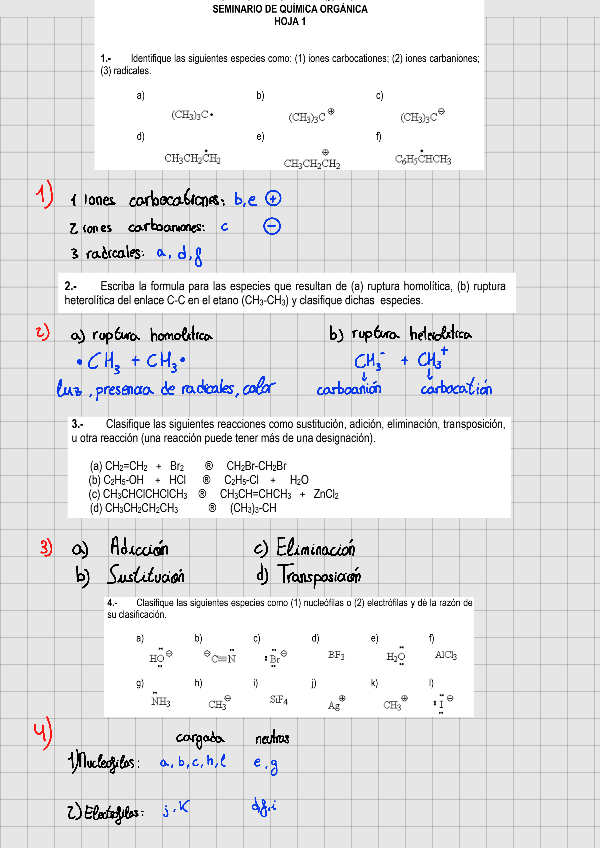 SEMINARIO DE QUÍMICA ORGÁNICA
HOJA 1
1.- Identifique las siguientes especies como: (1) iones carbocationes; (2) iones carbaniones;
(3) radicales.
a) b) c)
(CH₃)₃C• (CH₃)₃C⊕ (CH₃)₃C⊖
d) e) f)
CH₃CH₂ĊH₂ CH₃CH₂CH₂⊕ C₆H₅ĊHCH₃
1) 1 Iones carbocationes: b, e ⊕
2 iones carboaniones: c ⊖
3 radicales: a, d, f
2.- Escriba la formula para las especies que resultan de (a) ruptura homolítica, (b) ruptura
heterolítica del enlace C-C en el etano (CH₃-CH₃) y clasifique dichas especies.
2) a) ruptura homolítica b) ruptura heterolítica
•CH₃ + CH₃• CH₃⁻ + CH₃⁺
↓ ↓
luz, presencia de radicales, calor carboanión carbocatión
3.- Clasifique las siguientes reacciones como sustitución, adición, eliminación, transposición,
u otra reacción (una reacción puede tener más de una designación).
(a) CH₂=CH₂ + Br₂ ® CH₂Br-CH₂Br
(b) C₂H₅-OH + HCl ® C₂H₅-Cl + H₂O
(c) CH₃CHClCHClCH₃ ® CH₃CH=CHCH₃ + ZnCl₂
(d) CH₃CH₂CH₂CH₃ ® (CH₃)₃-CH
3) a) Adicción c) Eliminación
b) Sustitución d) Transposición
4.- Clasifique las siguientes especies como (1) nucleófilas o (2) electrófilas y dé la razón de
su clasificación.
a) b) c) d) e) f)
HO⊖ ⊖C≡N Br⊖ BF₃ H₂O AlCl₃
g) h) i) j) k) l)
NH₃ CH₃⊖ SiF₄ Ag⊕ CH₃⊕ I⊖
4) cargada neutras
1) Nucleofilos: a, b, c, h, l e, g
2) Electrofilos: j, K d, f, i